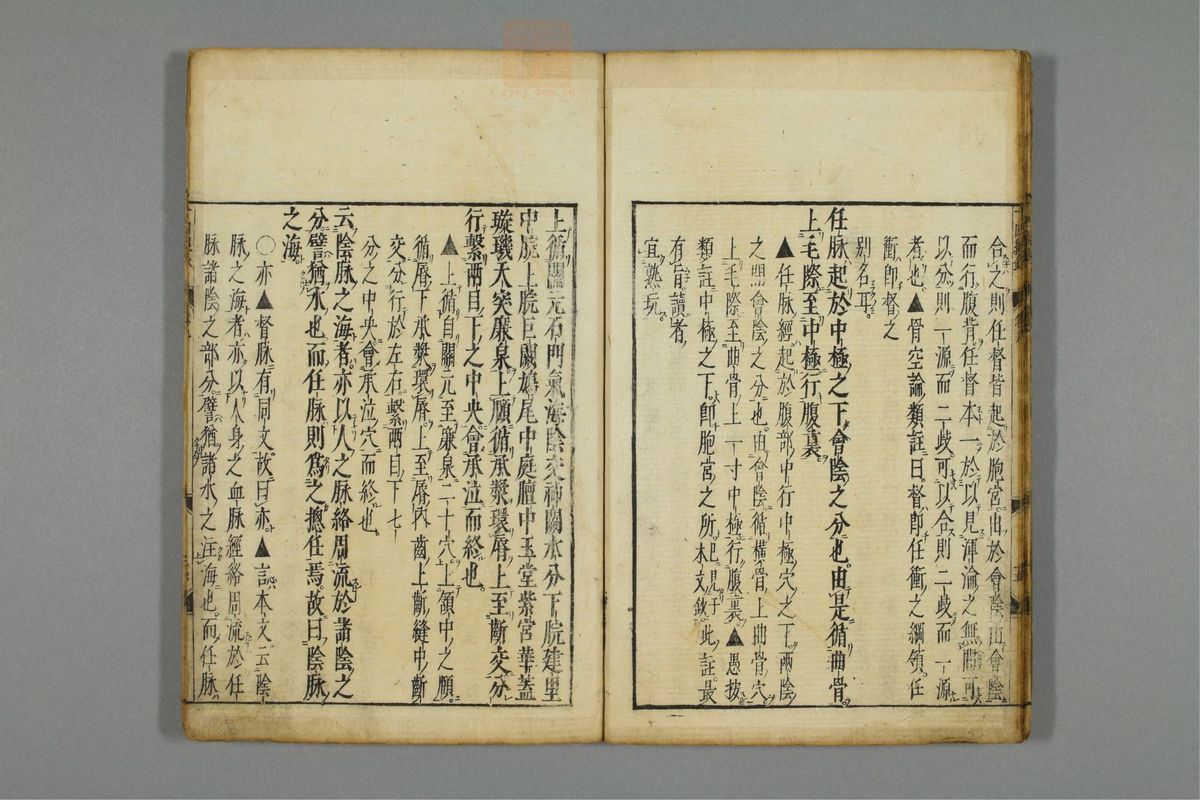 合之則任督皆起於胞宮由於會陰由會陰
而行腹背任督本一於以見渾淪之無間可
以分則一源而二歧可以合則二歧而一源
者也▲骨空論類註曰督即任衝之綱領任
衝即督之
別名耳
任脉起於中極之下會陰之分也由是循曲骨
上毛際至中極行腹裏
▲任脉經起於腹部中行中極穴之下兩陰
之間會陰之分也由會陰循橫骨上曲骨穴
上毛際至曲骨上一寸中極行腹裏▲愚按
類註中極之下即胞宮之所本文欽此註最
有旨讀者
宜熟玩
上循關元石門氣海陰交神闕水分下脘建里
中脘上脘巨闕鳩尾中庭膻中玉堂紫宮華蓋
璇璣天突廉泉上頤循承漿環唇上至齗交分
行繫兩目下之中央會承泣而終也
▲上循自關元至廉泉二十穴上頷中之頤
循唇下承漿環唇上至唇內齒上齗縫中齗
交分行於左右繫兩目下七
分之中央會承泣穴而終也
云陰脉之海者亦以人之脉絡周流於諸陰之
分譬猶水也而任脉則爲之摠任焉故曰陰脉
之海
○亦▲督脉有同文故曰亦▲言本文云陰
脉之海者亦以人身之血脉經絡周流於任
脉諸陰之部分譬猶諸水之注海也而任脉